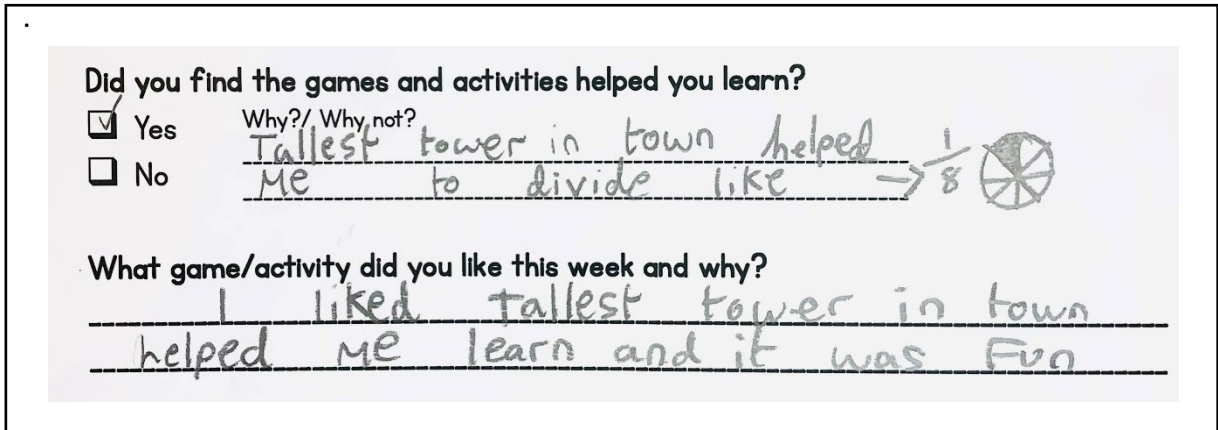 Did you find the games and activities helped you learn?
Yes
Why?/ Why not?
Tallest tower in town helped
No
Me to divide like → 1/8
What game/activity did you like this week and why?
I liked Tallest tower in town
helped me learn and it was Fun